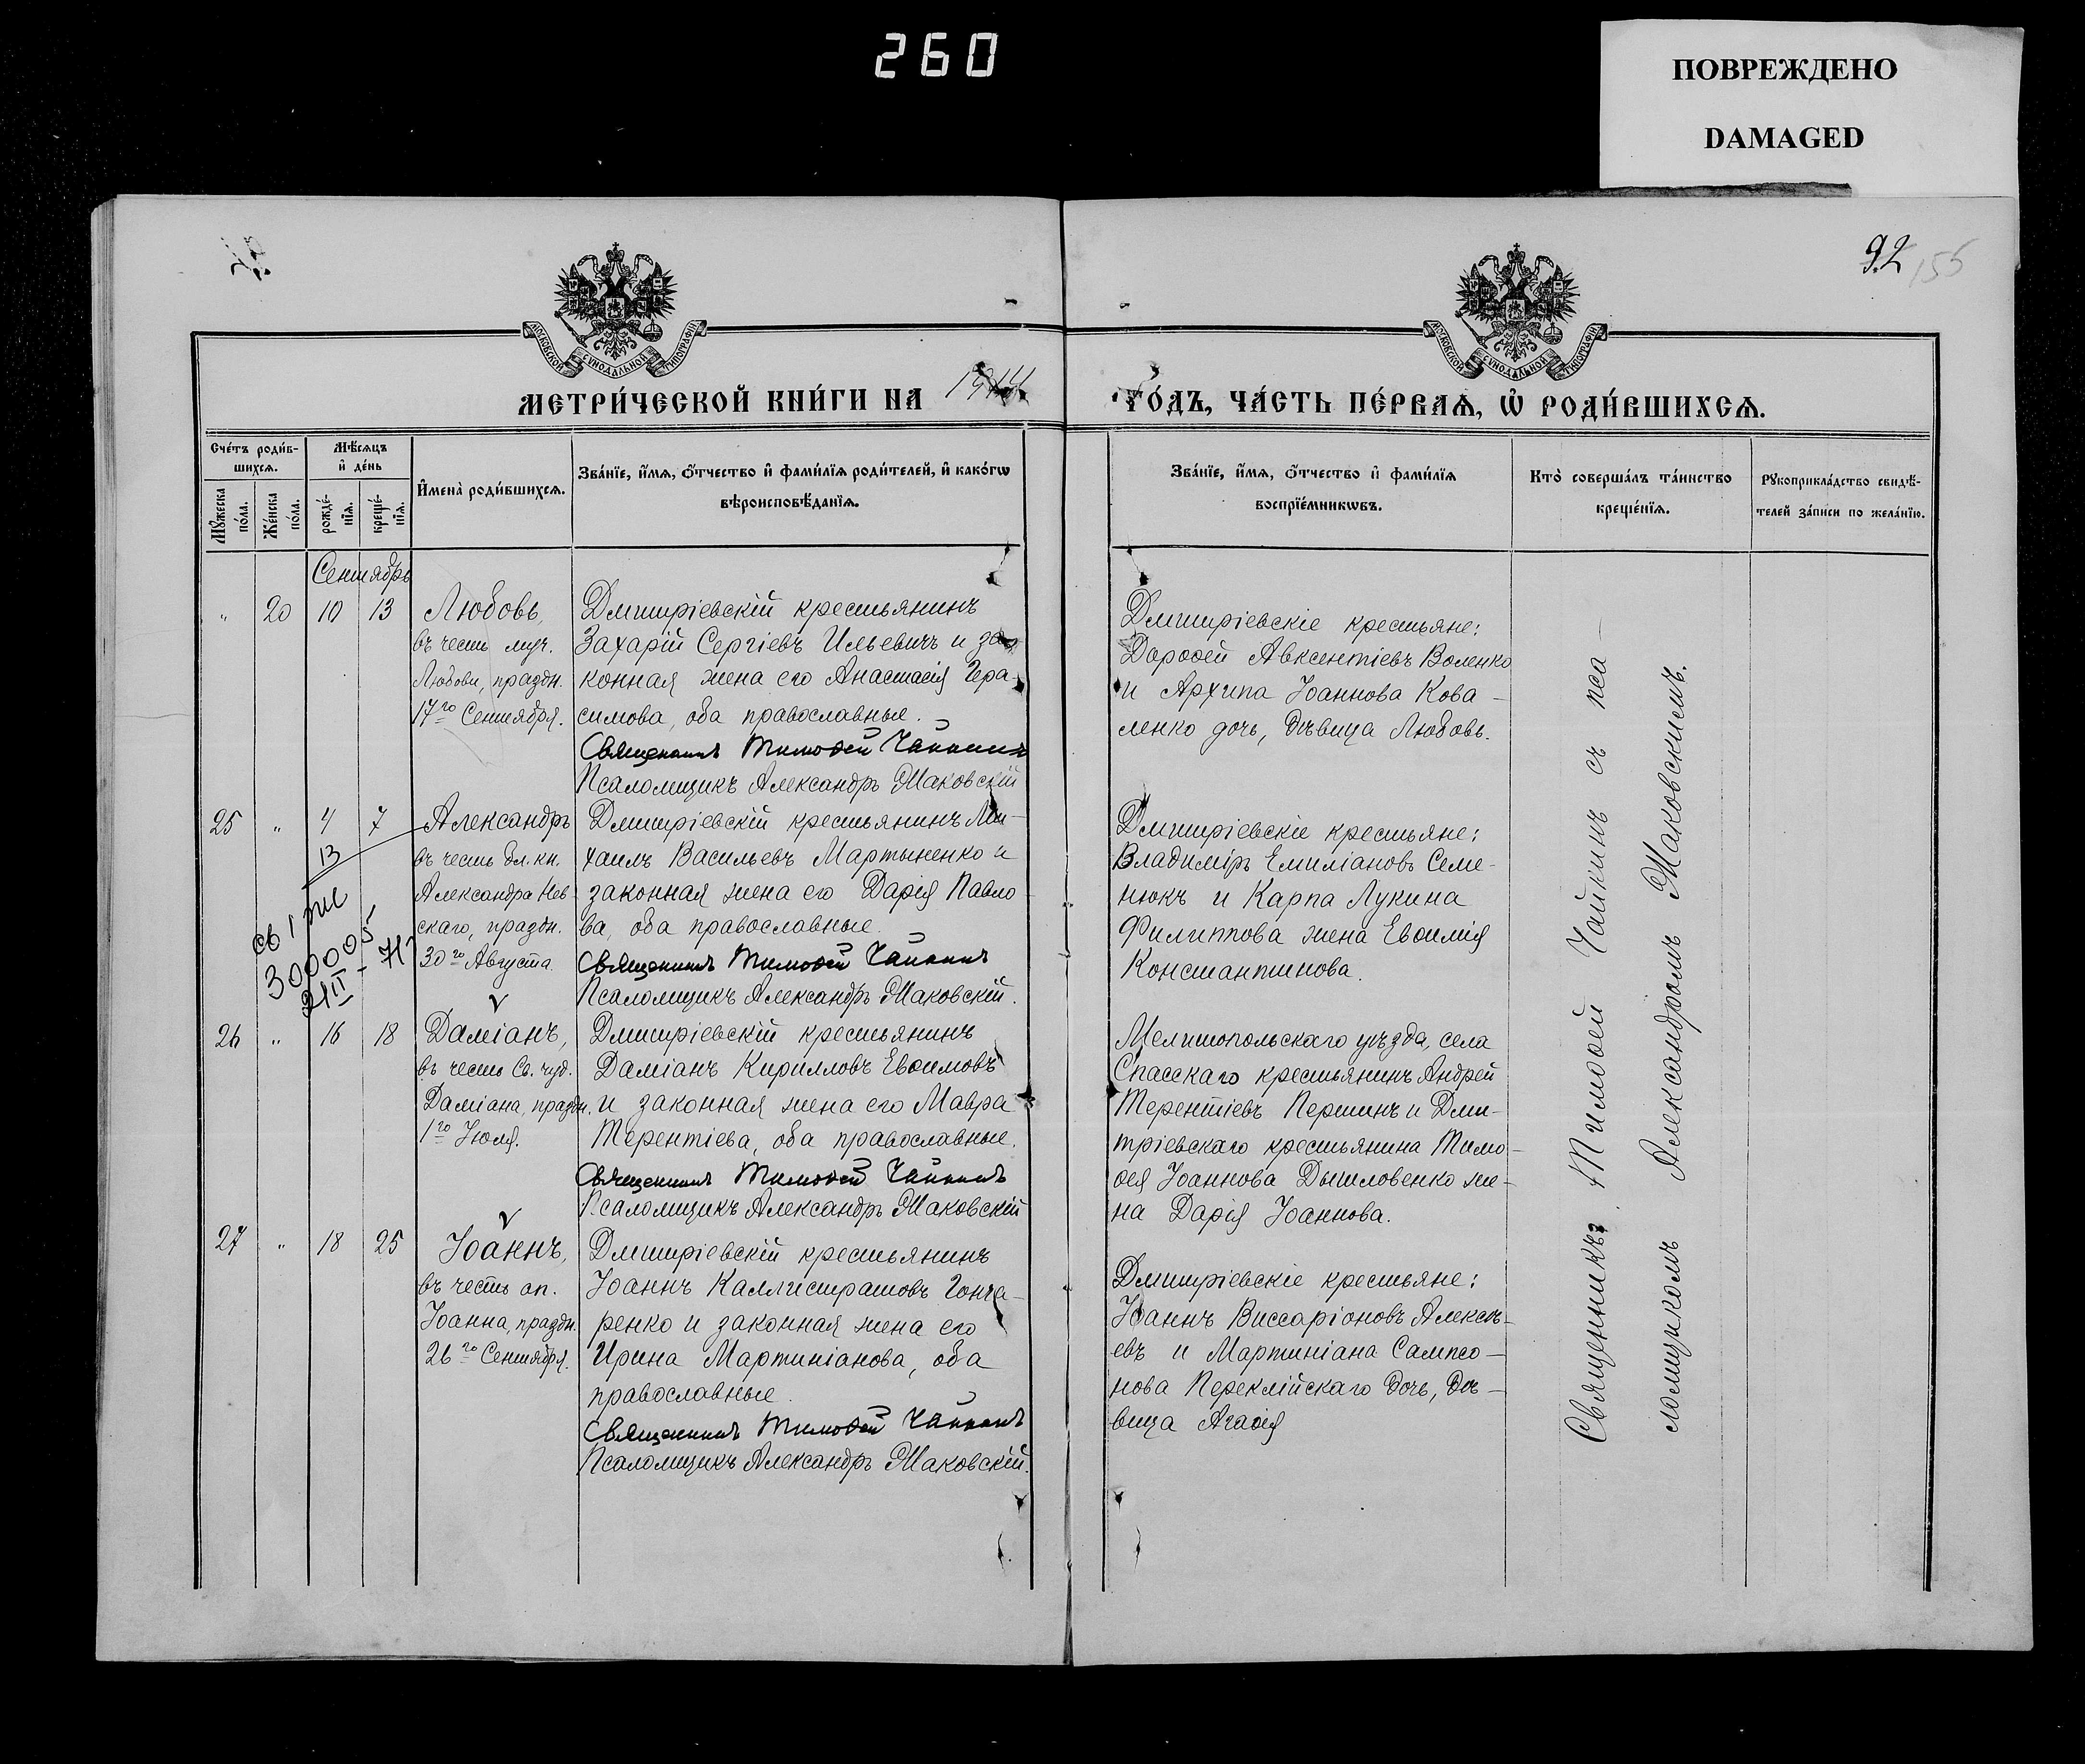 260
ПОВРЕЖДЕНО
DAMAGED
92
155
МОСКОВСКОЙ СѴНОДАЛЬНОЙ ТИПОГРАФІИ
МОСКОВСКОЙ СѴНОДАЛЬНОЙ ТИПОГРАФІИ
МЕТРИ́ЧЕСКОЙ КНИ́ГИ НА 1914
ГО́ДЪ, ЧА́СТЬ ПЕ́РВАѦ, Ѡ РОДИ́ВШИХСѦ.
Сче́тъ роди́в-
шихсѧ.
Мѣ́сѧцъ
и҆ де́нь
Мꙋжеска
по́ла.
Же́нска
по́ла.
рожде́-
нїѧ.
креще́-
нїѧ.
И҆мена̀ роди́вшихсѧ.
Зва́нїе, и҆́мѧ, ѻ҆́тчество и҆ фами́лїѧ роди́телей, и҆ како́гѡ
вѣроисповѣ́данїѧ.
Зва́нїе, и҆́мѧ, ѻ҆́тчество и҆ фами́лїѧ
воспрїе́мникѡвъ.
Кто̀ соверша́лъ та́инство
креще́нїѧ.
Рꙋкоприкла́дство свидѣ́-
телей за́писи по жела́нїю.
Сентябрь
„ 20 10 13 Любовь,
въ честь муч.
Любови, праздн.
17го Сентября.
Дмитріевскій крестьянинъ
Захарій Сергіевъ Ильевичъ и за-
конная жена его Анастасія Гера-
симова, оба православные.
Священникъ Тимоѳей Чайкинъ
Псаломщикъ Александръ Маковскій
Дмитріевскіе крестьяне:
Дороѳей Авксентіевъ Воленко
и Архипа Іоаннова Кова-
ленко дочь, дѣвица Любовь.
25 „ 4 7 Александръ
13
въ честь бл. кн.
Александра Нев-
скаго, праздн.
30го Августа.
300005
Дмитріевскій крестьянинъ Ми-
хаилъ Васильевъ Мартыненко и
законная жена его Дарія Павло-
ва, оба православные.
Священникъ Тимоѳей Чайкинъ
Псаломщикъ Александръ Маковскій.
Дмитріевскіе крестьяне:
Владиміръ Емиліановъ Семе-
нюкъ и Карпа Лукина
Филиппова жена Евѳимія
Константинова.
26 „ 16 18 Даміанъ,
въ честь Св. чуд.
Даміана, праздн.
1го Іюля.
Дмитріевскій крестьянинъ
Даміанъ Кирилловъ Евѳимовъ
и законная жена его Мавра
Терентіева, оба православные.
Священникъ Тимоѳей Чайкинъ
Псаломщикъ Александръ Маковскій
Мелитопольскаго уѣзда, села
Спасскаго крестьянинъ Андрей
Терентіевъ Першинъ и Дми-
тріевскаго крестьянина Тимо-
ѳея Іоаннова Дышловенко же-
на Дарія Іоаннова.
27 „ 18 25 Іоаннъ,
въ честь ап.
Іоанна, праздн.
26го Сентября.
Дмитріевскій крестьянинъ
Іоаннъ Каллистратовъ Гонча-
ренко и законная жена его
Ирина Мартиніанова, оба
православные.
Священникъ Тимоѳей Чайкинъ
Псаломщикъ Александръ Маковскій.
Дмитріевскіе крестьяне:
Іоаннъ Виссаріоновъ Алексѣ-
евъ и Мартиніана Сампсо-
нова Переклійскаго дочь, дѣ-
вица Агаѳія
Священникъ Тимоѳей Чайкинъ съ пса-
ломщикомъ Александромъ Маковскимъ.